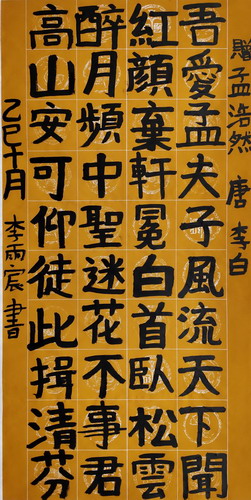 贈孟浩然 唐 李白
吾愛孟夫子風流天下聞
紅顏棄軒冕白首臥松雲
醉月頻中聖迷花不事君
高山安可仰徒此揖清芬
乙巳十月 李雨宸書